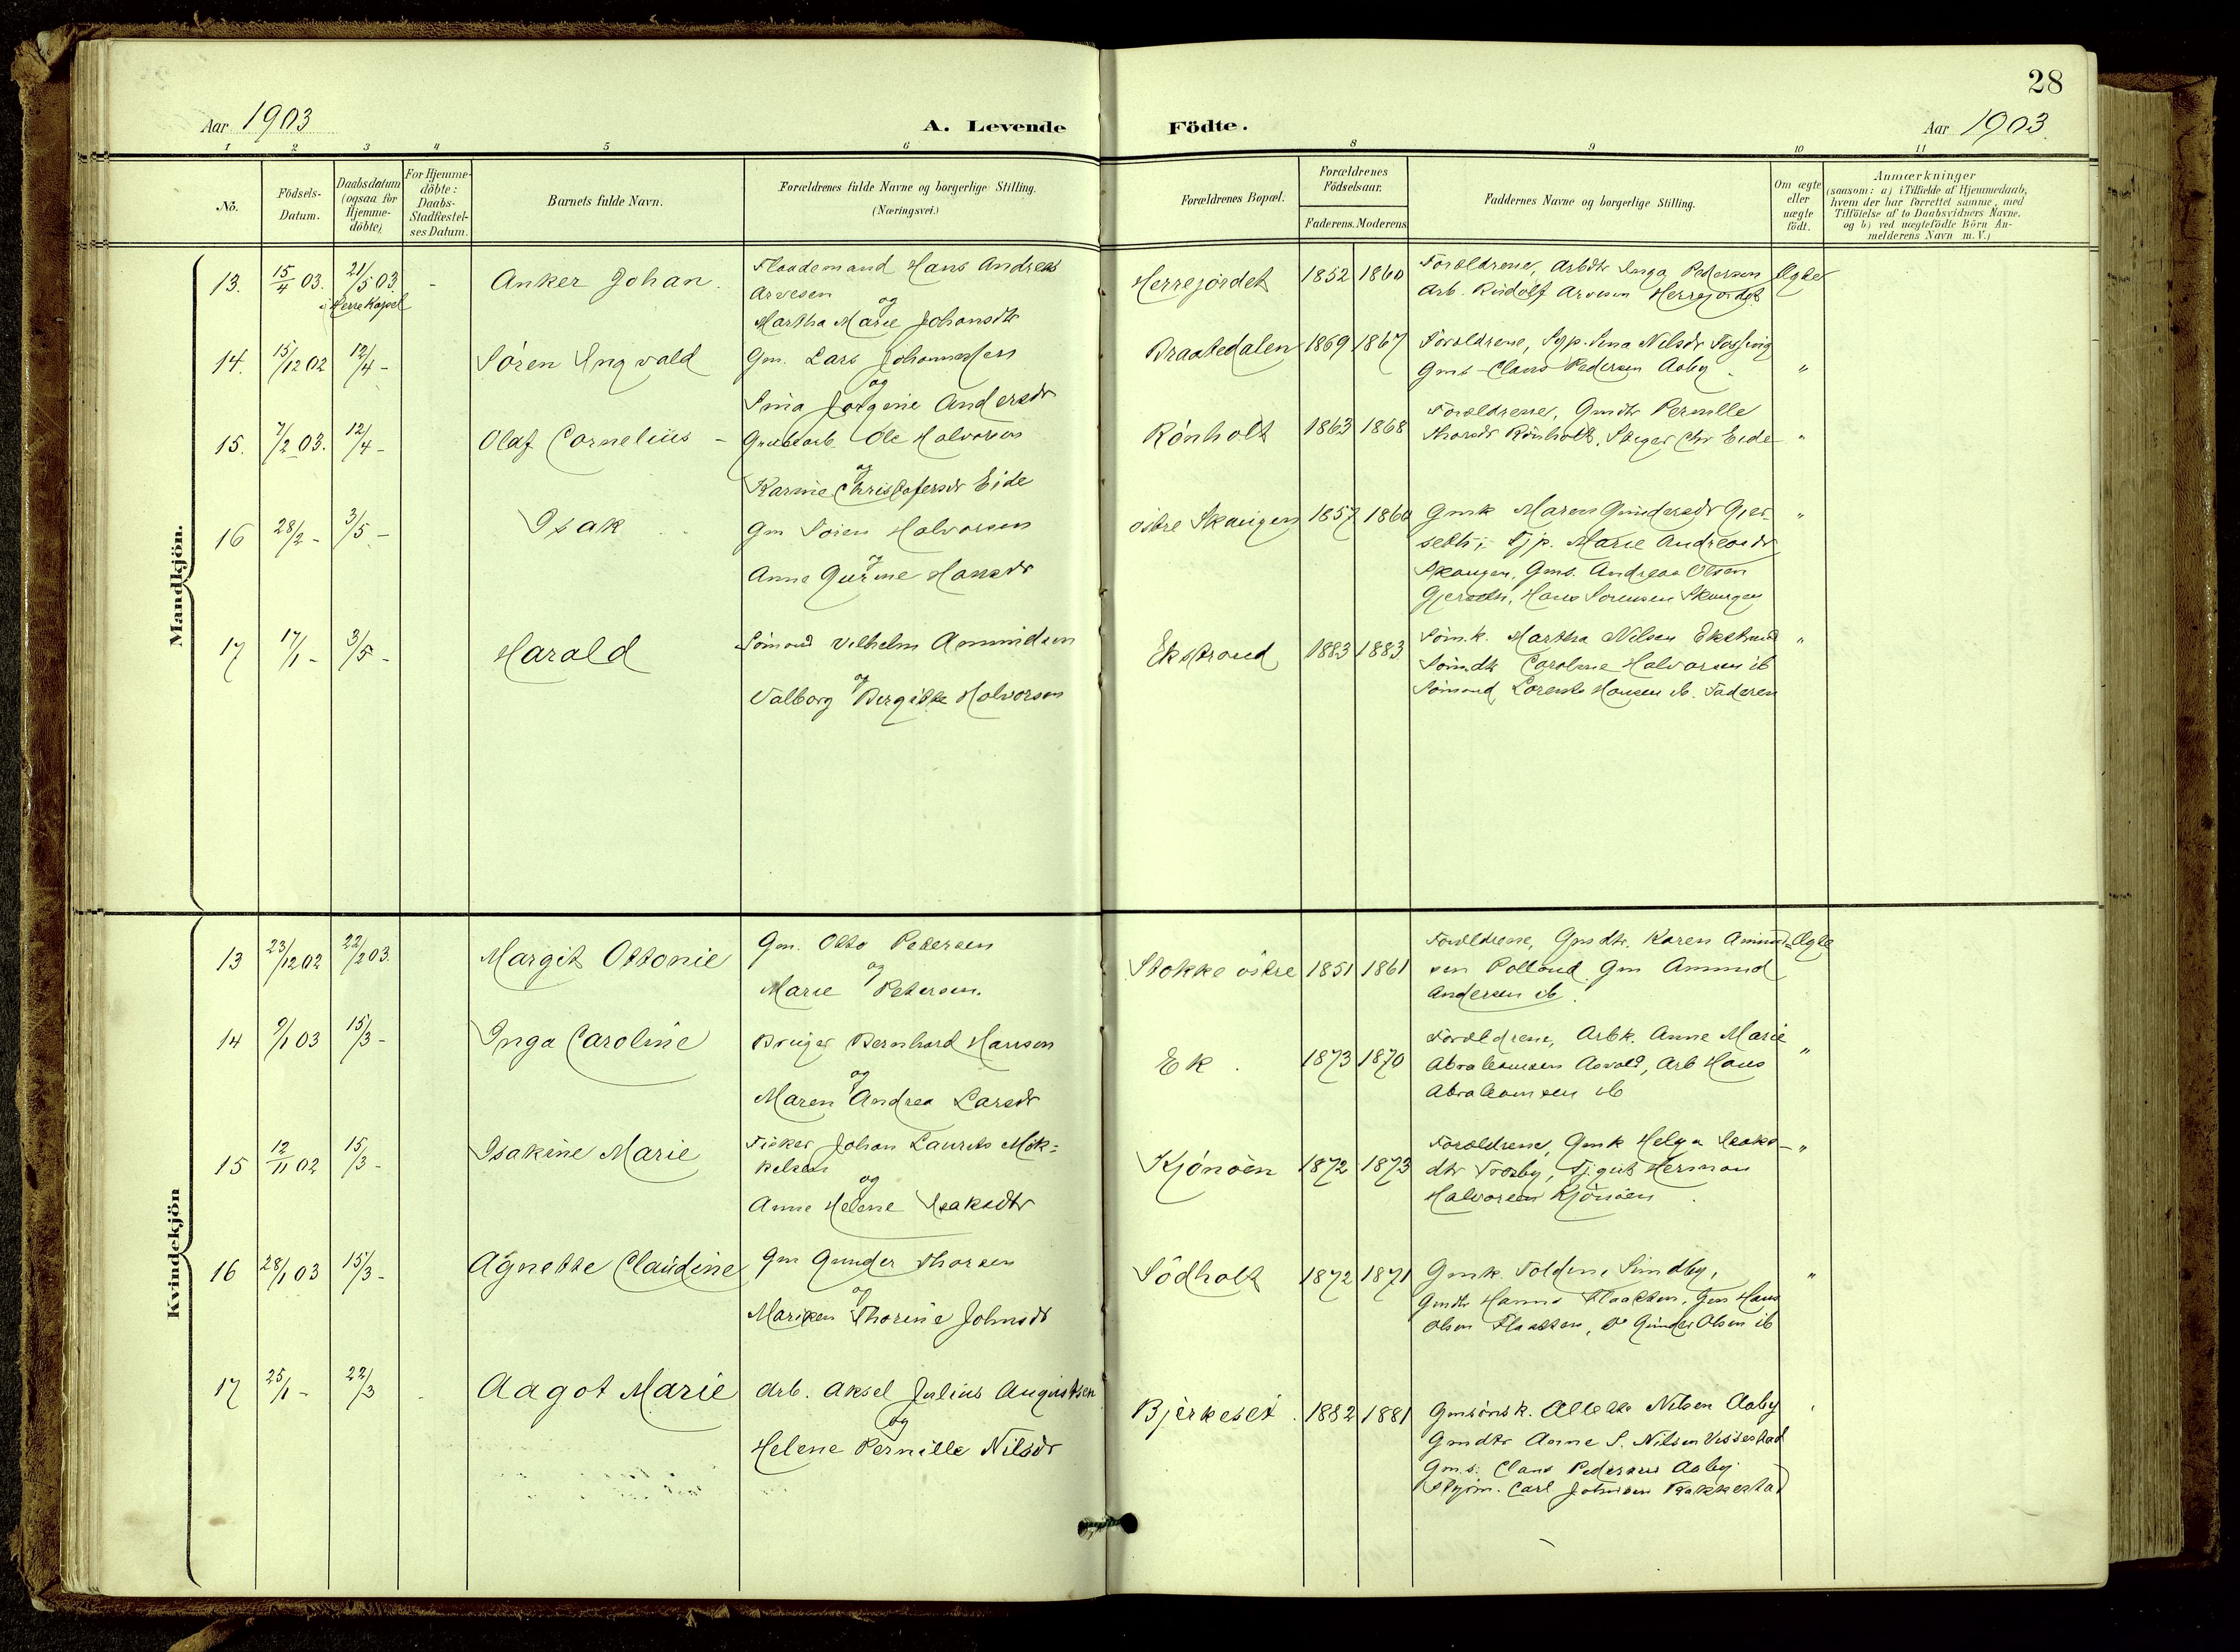 28
Aar 1903
A. Levende Födte.
Aar 1903.
1 2 3 4 5 6 8 9 10 11
No.
Födsels-
Datum.
Daabsdatum
(ogsaa for
Hjemme-
döbte)
For Hjemme-
döbte:
Daabs-
Stadfæstel-
ses Datum.
Barnets fulde Navn.
Forældrenes fulde Navne og borgerlige Stilling.
(Næringsvei.)
Forældrenes Bopæl.
Forældrenes
Födselsaar.
Faderens. Moderens
Faddernes Navne og borgerlige Stilling.
Om ægte
eller
uægte
födt.
Anmærkninger
(saasom: a) i Tilfælde af Hjemmedaab,
hvem der har forrettet samme, med
Tilföielse af to Daabsvidners Navne.
og b) ved uægtefödte Börn An-
melderens Navn m. V.)
Mandkjön.
13. 15/4 03. 21/5 03 - Anker Johan.
i Herre Kapel
Flaademand Hans Andreas
Arvesen
og
Martha Marie Johansdtr
Herrejordet 1852 1860
Forældrene, Arbdtr Inga Pedersen
Arb. Rudolf Arvesen Herrejordet
Ægte
14. 15/12 02 12/4 - Sören Ingvald
Gm. Lars Johannessen
og
Sina Jörgine Andersdr
Braatedalen 1869 1867
Forældrene, Sina Nilsdr Fossing
Gms Claus Pedersen Aaby. "
15. 7/2 03. 12/4 - Olaf Cornelius -
Grubearb. Ole Halvorsen
og
Karine Christofersdr Eide
Rönholt 1863 1868
Forældrene, Gmdtr Pernille
Thorsdr Rönholt, Chr Eide "
16 28/2 - 3/5 - Isak
Gm Sören Halvorsen
og
Anne Gurine Hansdr
östre Skaugen 1857 1860
Gmk Maren Gundersdr Gjer-
seth, Tjp. Marie Andreasdr
Skaugen, Gms. Andreas Olsen
Gjerseth, Hans Sorensen Skaugen "
17 17/1 - 3/5 - Harald
Sömand Vilhelm Amundsen
og
Valborg Bergitte Halvorsen
Ekstrand 1883 1883
Söm.k. Martha Nilsen Ekstrand
Sömdtr Caroline Halvorsen ib
Sömand Lorents Hansen ib. Faderen "
Kvindekjön
13 23/12 02 22/2 03. Margit Ottonie
Gm. Otto Petersen
og
Marie Petersen.
Stokke östre 1851 1861
Forældrene, Gmdtr. Karen Amund-
sen Gm Amund
Andersen ib.
Ægte
14 9/1 03 15/3 - Inga Caroline
Bruger Bernhard Hansen
og
Maren Andrea Larsdr
Ek. 1873 1870
Forældrene, Arbk. Anne Marie
Abrahamsen Aasvald, Arb Hans
Abrahamsen ib "
15 12/11 02 15/3 - Isakine Marie
Fisker Johan Laurits Mik-
kelsen
og
Anne Helene Isaksdtr
Kjönöen 1872 1873
Forældrene, Gmk Helga Isaks-
dtr Trosby, Tjgut Herman
Halvorsen Kjönöen. "
16 28/1 03 15/3 - Agnette Claudine
Gm Gunder Thorsen
og
Mariken Thorine Johnsdr
Södholt 1872 1871
Gmk. Sundby,
Gmdtr Hanna Flaatten, Gm Hans
Olsen Flaatten, Do Gunder Olsen ib "
17 25/1 - 22/3 - Aagot Marie
Arb. Aksel Julius Augustsen
og
Helene Pernille Nilsdr
Bjerkeset. 1882 1881
Gmsönsk. Nilsen Aaby
Gmdtr Anne S. Nilsen Vissestad
Gm.s. Claus Pedersen Aaby
Carl Johnsen Rakkestad